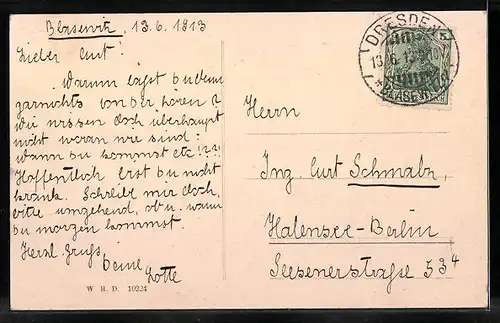 Blasewitz, 13.6.1913
Lieber Curt!
Warum lässt du denn
garnichts von dir hören?
Wir wissen doch überhaupt
nicht woran wir sind:
wann du kommst etc!??
Hoffentlich bist du nicht
krank. Schreibe mir doch,
bitte umgehend, ob u. wann
du morgen kommst.
Herzl. Gruss,
Deine
Lotte
W. H. D. 10224
DRESDEN
13.6.
* BLASEW
5
Herrn
Ing. Curt Schmalz
Halensee-Berlin
Seesenerstraße 53 4